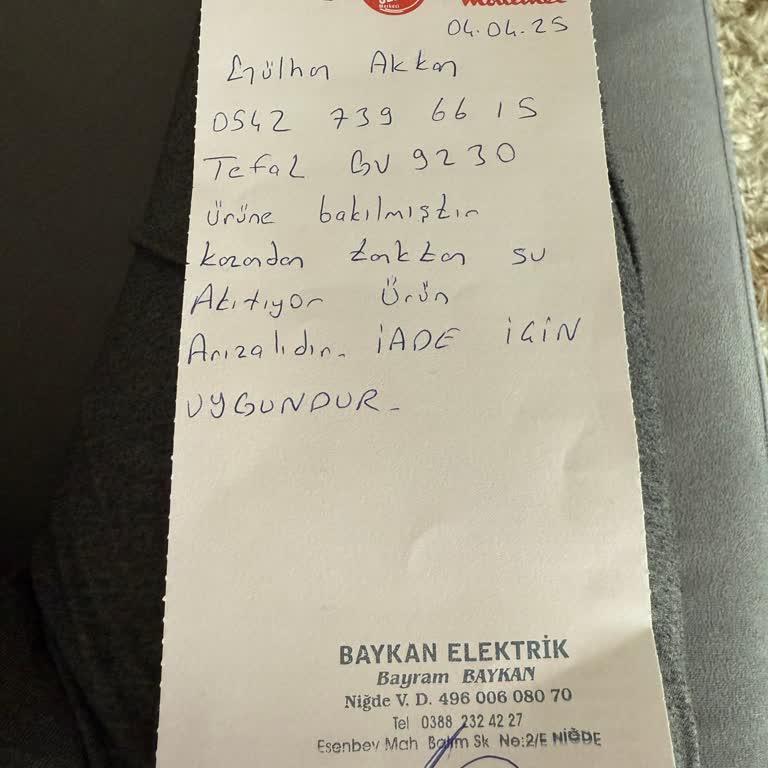 04.04.25
Gülhan Akkan
0542 739 66 15
Tefal GV 9230
Ürüne bakılmıştır
kazandan tanktan su
Akıtıyor Ürün
Arızalıdır. İADE İÇİN
UYGUNDUR.
BAYKAN ELEKTRİK
Bayram BAYKAN
Niğde V. D. 496 006 080 70
Tel 0388 232 42 27
Esenbey Mah Sk No:2/E NİĞDE